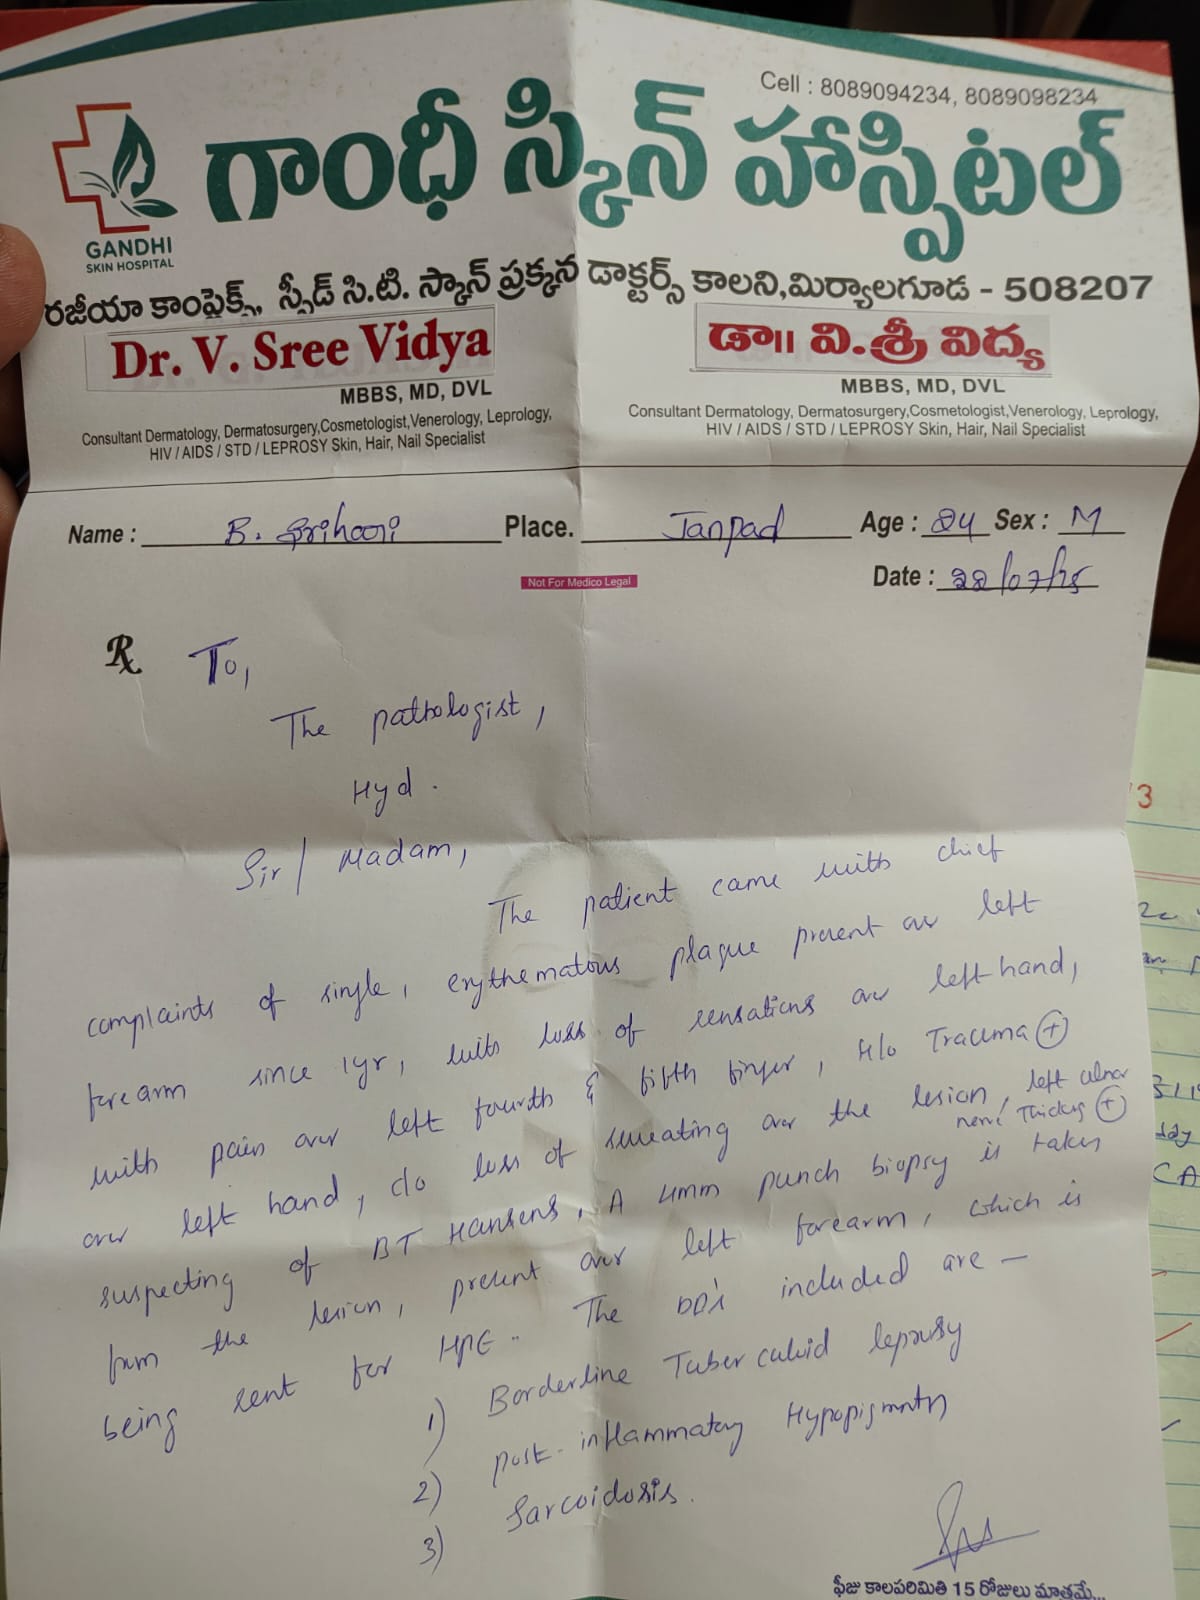 Cell : 8089094234, 8089098234
గాంధీ స్కిన్ హాస్పిటల్
GANDHI
SKIN HOSPITAL
రజియా కాంప్లెక్స్, స్పీడ్ సి.టి. స్కాన్ ప్రక్కన డాక్టర్స్ కాలని,మిర్యాలగూడ - 508207
Dr. V. Sree Vidya
MBBS, MD, DVL
Consultant Dermatology, Dermatosurgery,Cosmetologist,Venerology, Leprology,
HIV / AIDS / STD / LEPROSY Skin, Hair, Nail Specialist
డా॥ వి.శ్రీ విద్య
MBBS, MD, DVL
Consultant Dermatology, Dermatosurgery,Cosmetologist,Venerology, Leprology,
HIV / AIDS / STD / LEPROSY Skin, Hair, Nail Specialist
Name : B. Srihari Place. Janpad Age : 24 Sex : M
Date : 22/07/25
Not For Medico Legal
Rx To,
The pathologist,
Hyd.
Sir / Madam,
The patient came with chief
complaints of single, erythematous plaque present over left
forearm since 1yr, with loss of sensations over left hand,
with pain over left fourth & fifth finger, H/o Trauma (+)
over left hand, c/o loss of sweating over the lesion, left ulnar
nerve Thickn (+)
suspecting of BT Hansens, A 4mm punch biopsy is taken
from the lesion, present over left forearm, which is
being sent for HPE. The DD's included are —
1) Borderline Tuberculoid leprosy
2) post-inflammatory Hypopigmntn
3) Sarcoidosis.
ఫీజు కాలపరిమితి 15 రోజులు మాత్రమే...